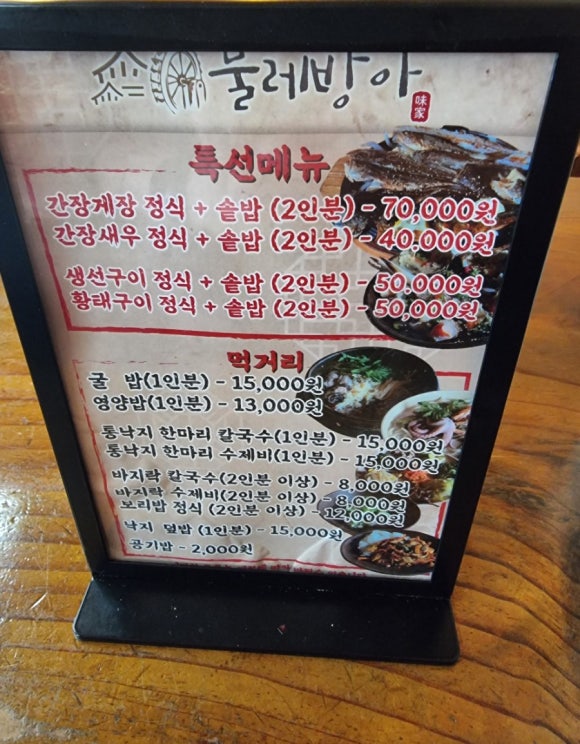 물레방아
味家
특선메뉴
간장게장 정식 + 솥밥 (2인분) - 70,000원
간장새우 정식 + 솥밥 (2인분) - 40.000원
생선구이 정식 + 솥밥 (2인분) - 50.000원
황태구이 정식 + 솥밥 (2인분) - 50,000원
먹거리
굴 밥(1인분) - 15,000원
영양밥(1인분) - 13,000원
통낙지 한마리 칼국수(1인분) - 15,000원
통낙지 한마리 수제비(1인분) - 15,000원
바지락 칼국수(2인분 이상) - 8,000원
바지락 수제비(2인분 이상) - 8,000원
보리밥 정식 (2인분 이상) - 12,000원
낙지 덮밥 (1인분) - 15,000원
공기밥 - 2,000원